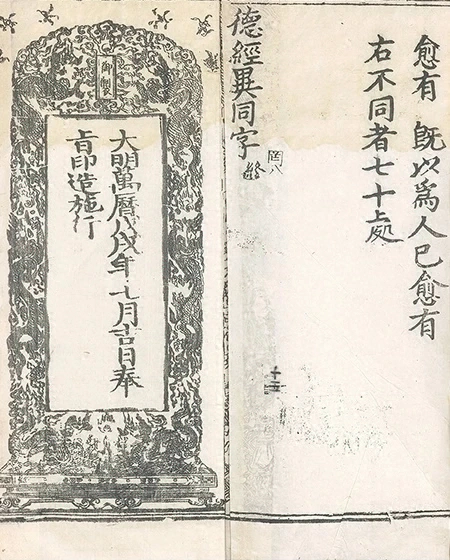 愈有 既以爲人已愈有
右不同者七十處
罔八
德經異同字 終
御製
大明萬曆戊戌年七月吉日奉
旨印造施行